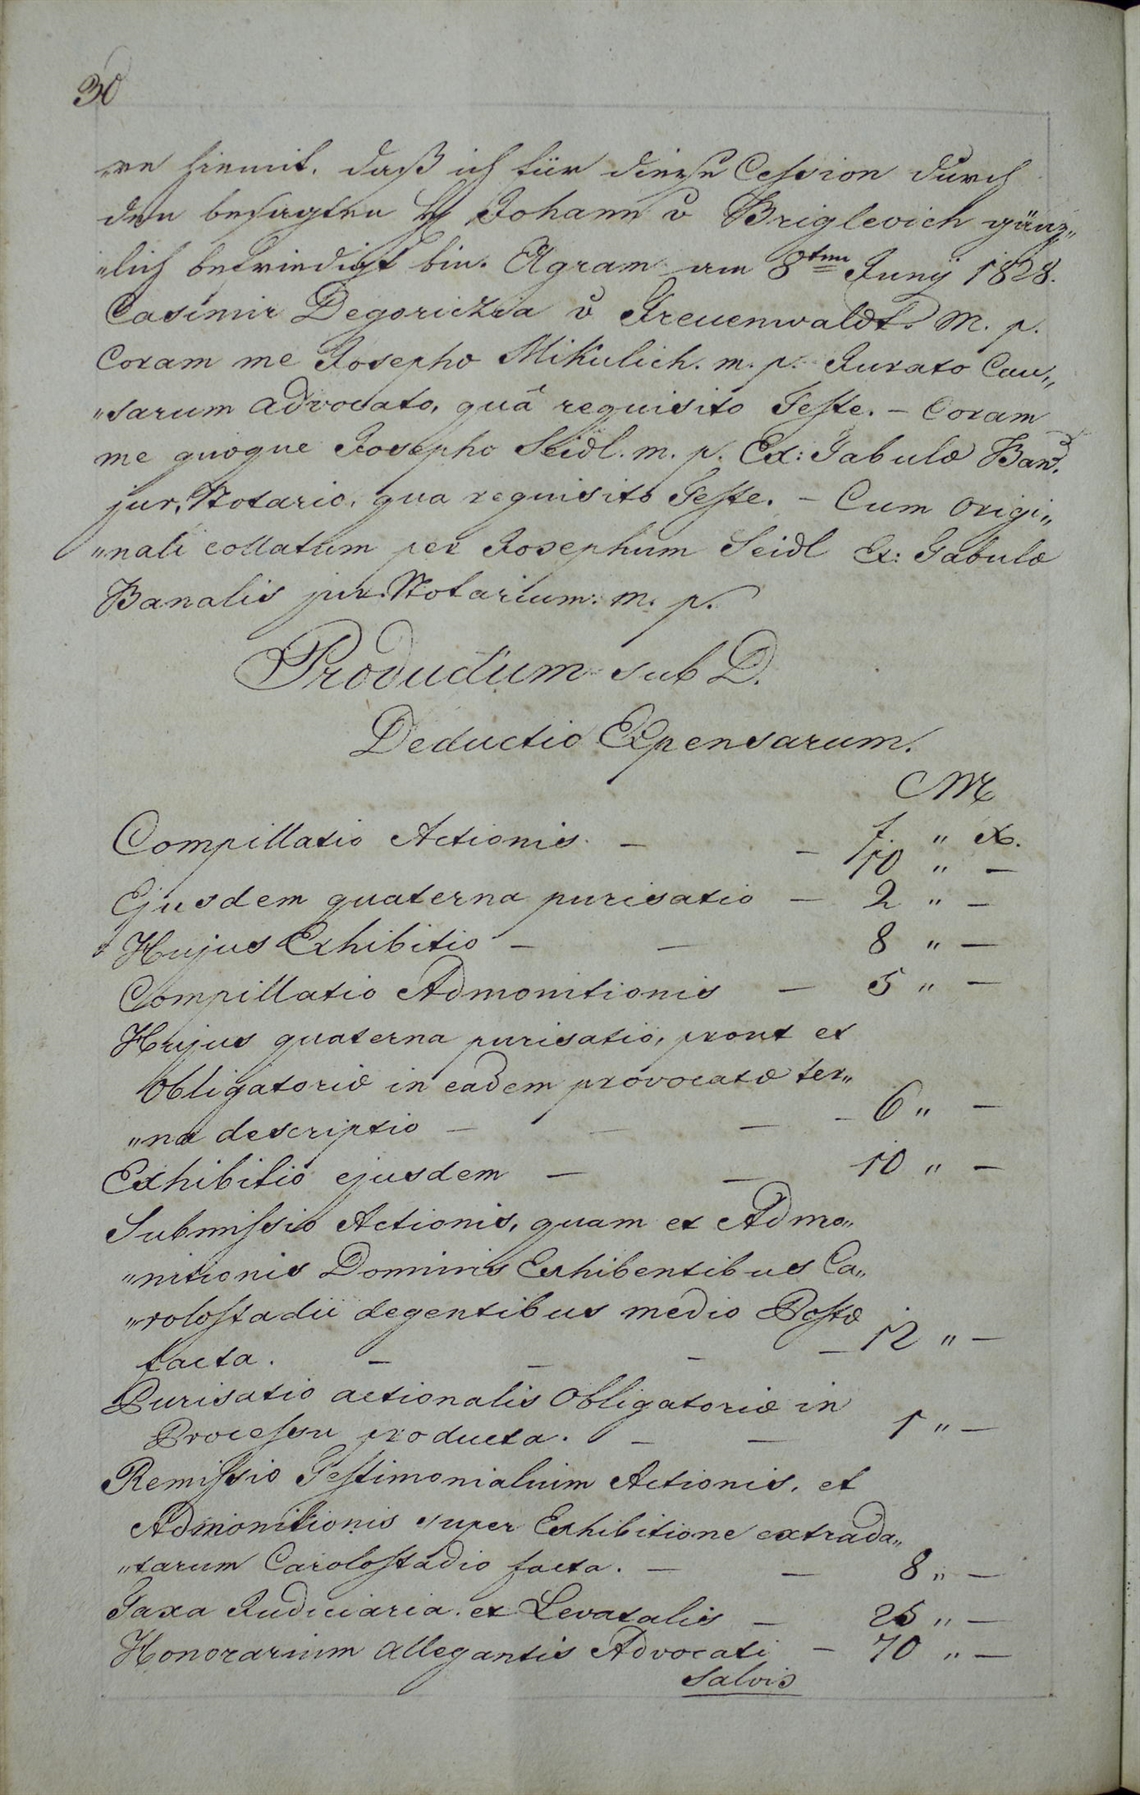 30
re hiemit, daß ich für diese Cession durch
den besagten H Johann v Briglevich gänz„
„lich befriedigt bin. Agram am 8ten Juny 1828.
Casimir Degoricza v Treuenwaldt. m. p.
Coram me Josepho Mikulich. m. p. Jurato Cau„
„sarum advocato, quâ requisito Teste. – Coram
me quoque Josepho Seidl. m. p. Ex: Tabulæ Ban.
jur. Notario, qua requisito Teste. – Cum origi„
„nali collatum per Josephum Seidl Ex: Tabulæ
Banalis jur. Notarium. m. p.
Productum sub D.
Deductio Expensarum.
CM
f " x.
Compillatio Actionis. – – 10 " –
Ejusdem quaterna purisatio – 2 " –
Hujus Exhibitio – – 8 " –
Compillatio Admonitionis – 5 " –
Hujus quaterna purisatio, prout et
Obligatoriæ in eadem provocatæ ter„
„na descriptio – – – – 6 " –
Exhibitio ejusdem – – 10 " –
Submissio Actionis, quam et Admo„
„nitionis Dominis Exhibentibus Ca„
„rolostadii degentibus medio Postæ
facta. – – – – 12 " –
Purisatio actionalis Obligatoriæ in
Processu producta. – – 1 " –
Remissio Testimonialium Actionis, et
Admonitionis super Exhibitione extrada„
„tarum Carolostadio facta. – – 8 " –
Taxa Judiciaria et Levatalis – 25 " –
Honorarium allegantis Advocati – 70 " –
Salvis